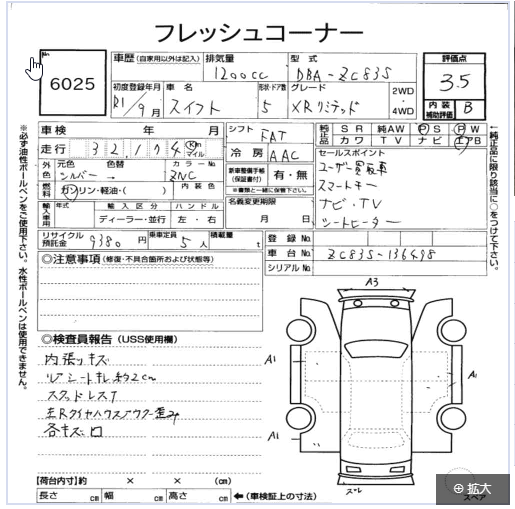 フレッシュコーナー
No.
6025
車歴 (自家用以外は記入)
排気量
1200cc
型式
DBA-ZC83S
評価点
3.5
初度登録年月
R1/9月
車名
スイフト
形状・ドア数
5
グレード
XRリミテッド
2WD
4WD
内装
補助評価
B
車検 年 月
シフト
FAT
純正品
SR 純AW PS PW
カワ TV ナビ エアB
走行 32,174 Km マイル
冷房
AAC
セールスポイント
ユーザー買取車
スマートキー
ナビ・TV
シートヒーター
外色
元色
シルバー
色替
→
カラーNo.
ZNC
新車整備手帳
(保証書付)
有・無
※書類と一緒に保管下さい。
燃料
ガソリン・軽油・( )
内装色
名義変更期限
月 日
輸入車用
年式
輸入区分
ディーラー・並行
ハンドル
左・右
リサイクル預託金 9380 円
乗車定員 5 人
積載量 t
登録No.
車台No. ZC83S-136498
シリアルNo.
◎注意事項 (修復・不具合箇所および状態等)
◎検査員報告 (USS使用欄)
内張りキズ
スタッドレスT
各キズ凹
A3
A1
A1
A1
A1
スペア
【荷台内寸】約 × × (cm)
長さ cm 幅 cm 高さ cm ←(車検証上の寸法)
※必ず油性ボールペンをご使用下さい。水性ボールペンは使用できません。
↑純正品に限り該当に○をつけて下さい。
拡大